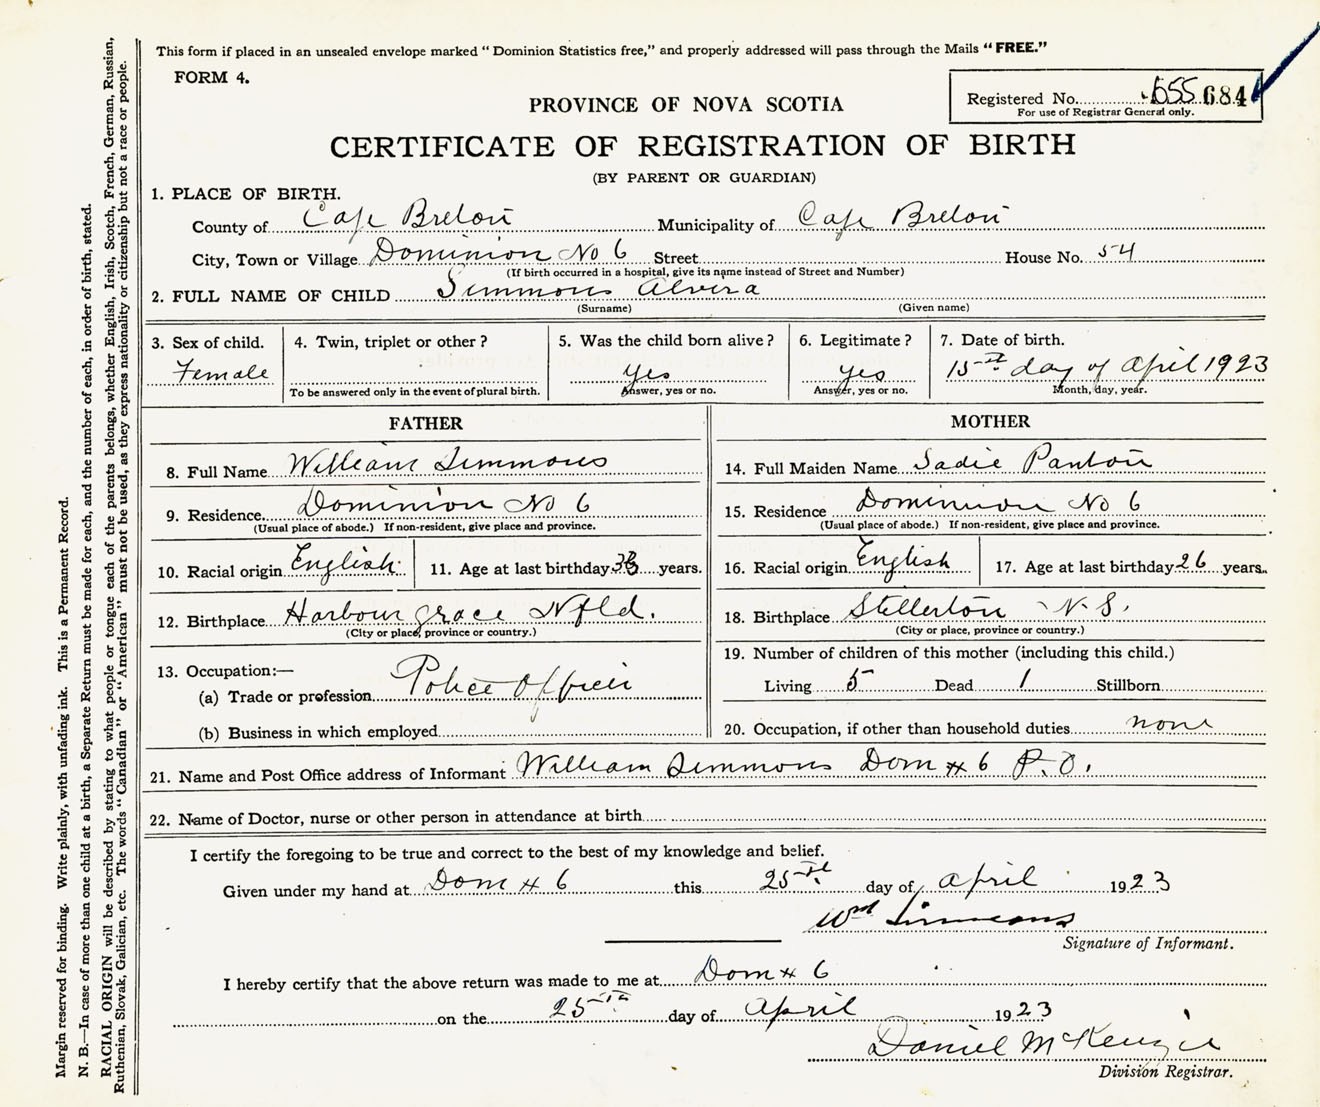 This form if placed in an unsealed envelope marked "Dominion Statistics free," and properly addressed will pass through the Mails "FREE."
FORM 4.
Registered No. 684
For use of Registrar General only.
PROVINCE OF NOVA SCOTIA
CERTIFICATE OF REGISTRATION OF BIRTH
(BY PARENT OR GUARDIAN)
1. PLACE OF BIRTH.
County of Cape Breton Municipality of Cape Breton
City, Town or Village Dominion No 6 Street House No. 54
(If birth occurred in a hospital, give its name instead of Street and Number)
2. FULL NAME OF CHILD Simmons Alvira
(Surname) (Given name)
3. Sex of child. 4. Twin, triplet or other? 5. Was the child born alive? 6. Legitimate? 7. Date of birth.
Female yes yes 15th day of April 1923
To be answered only in the event of plural birth. Answer, yes or no. Answer, yes or no. Month, day, year.
FATHER
8. Full Name William Simmons
9. Residence. Dominion No 6
(Usual place of abode.) If non-resident, give place and province.
10. Racial origin English 11. Age at last birthday years.
12. Birthplace Harbour grace Nfld.
(City or place, province or country.)
13. Occupation:—
(a) Trade or profession Police Officer
(b) Business in which employed
MOTHER
14. Full Maiden Name Sadie Panton
15. Residence Dominion No 6
(Usual place of abode.) If non-resident, give place and province.
16. Racial origin English 17. Age at last birthday 26 years.
18. Birthplace Stellerton N.S.
(City or place, province or country.)
19. Number of children of this mother (including this child.)
Living 5 Dead 1 Stillborn
20. Occupation, if other than household duties none
21. Name and Post Office address of Informant William Simmons Dom # 6 P.O.
22. Name of Doctor, nurse or other person in attendance at birth
I certify the foregoing to be true and correct to the best of my knowledge and belief.
Given under my hand at Dom # 6 this 25th day of April 1923
Wm Simmons
Signature of Informant.
I hereby certify that the above return was made to me at Dom # 6
on the 25th day of April 1923
Daniel McKenzie
Division Registrar.
Margin reserved for binding. Write plainly, with unfading ink. This is a Permanent Record.
N. B.—In case of more than one child at a birth, a Separate Return must be made for each, and the number of each, in order of birth, stated.
RACIAL ORIGIN will be described by stating to what people or tongue each of the parents belongs, whether English, Irish, Scotch, French, German, Russian,
Ruthenian, Slovak, Galician, etc. The words "Canadian" or "American" must not be used, as they express nationality or citizenship but not a race or people.